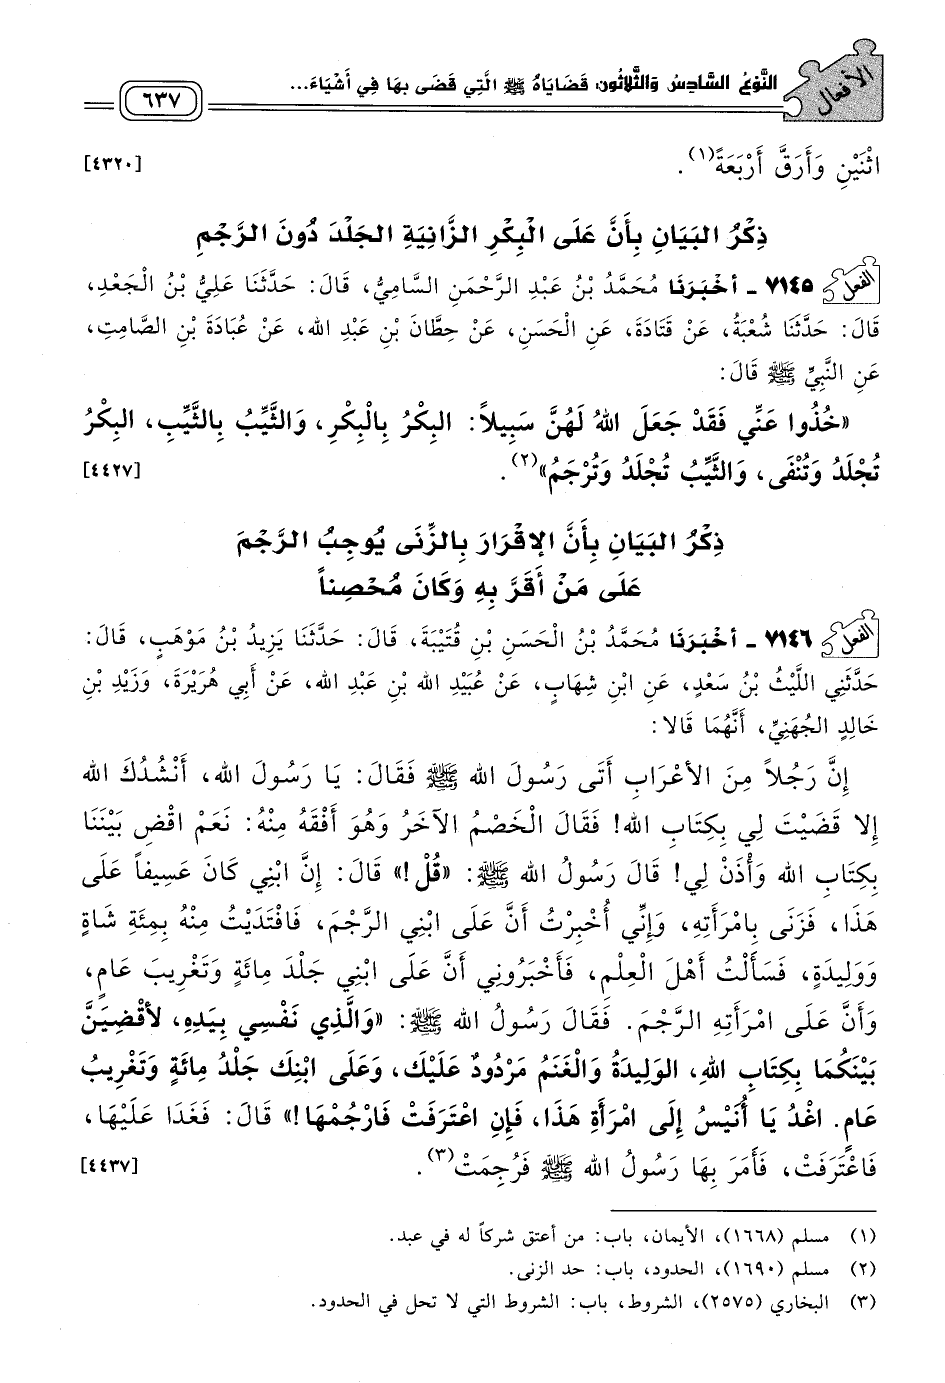 الأفعال
النَّوْعُ السَّادِسُ وَالثَّلاثُونَ: قَضَايَاهُ ﷺ الَّتِي قَضَى بِهَا فِي أَشْيَاءَ...
٦٣٧
اثْنَيْنِ وَأَرَقَّ أَرْبَعَةً(١). [٤٣٢٠]
ذِكْرُ البَيَانِ بِأَنَّ عَلَى الْبِكْرِ الزَّانِيَةِ الجَلْدَ دُونَ الرَّجْمِ
الفعل ٧١٤٥ - أخْبَرَنَا مُحَمَّدُ بْنُ عَبْدِ الرَّحْمَنِ السَّامِيُّ، قَالَ: حَدَّثَنَا عَلِيُّ بْنُ الْجَعْدِ،
قَالَ: حَدَّثَنَا شُعْبَةُ، عَنْ قَتَادَةَ، عَنِ الْحَسَنِ، عَنْ حِطَّانَ بْنِ عَبْدِ الله، عَنْ عُبَادَةَ بْنِ الصَّامِتِ،
عَنِ النَّبِيِّ ﷺ قَالَ:
«خُذُوا عَنِّي فَقَدْ جَعَلَ اللهُ لَهُنَّ سَبِيلاً: البِكْرُ بِالْبِكْرِ، وَالثَّيِّبُ بِالثَّيِّبِ، البِكْرُ
تُجْلَدُ وَتُنْفَى، وَالثَّيِّبُ تُجْلَدُ وَتُرْجَمُ»(٢). [٤٤٢٧]
ذِكْرُ البَيَانِ بِأَنَّ الإقْرَارَ بِالزِّنَى يُوجِبُ الرَّجْمَ
عَلَى مَنْ أَقَرَّ بِهِ وَكَانَ مُحْصِناً
الفعل ٧١٤٦ - أخْبَرَنَا مُحَمَّدُ بْنُ الْحَسَنِ بْنِ قُتَيْبَةَ، قَالَ: حَدَّثَنَا يَزِيدُ بْنُ مَوْهَبٍ، قَالَ:
حَدَّثَنِي اللَّيْثُ بْنُ سَعْدٍ، عَنِ ابْنِ شِهَابٍ، عَنْ عُبَيْدِ الله بْنِ عَبْدِ الله، عَنْ أَبِي هُرَيْرَةَ، وَزَيْدِ بْنِ
خَالِدٍ الجُهَنِيِّ، أَنَّهُمَا قَالا:
إِنَّ رَجُلاً مِنَ الأعْرَابِ أَتَى رَسُولَ الله ﷺ فَقَالَ: يَا رَسُولَ الله، أَنْشُدُكَ الله
إِلا قَضَيْتَ لِي بِكِتَابِ الله! فَقَالَ الْخَصْمُ الآخَرُ وَهُوَ أَفْقَهُ مِنْهُ: نَعَمْ اقْضِ بَيْنَنَا
بِكِتَابِ الله وَأْذَنْ لِي! قَالَ رَسُولُ الله ﷺ: «قُلْ!» قَالَ: إِنَّ ابْنِي كَانَ عَسِيفاً عَلَى
هَذَا، فَزَنَى بِامْرَأَتِهِ، وَإِنِّي أُخْبِرْتُ أَنَّ عَلَى ابْنِي الرَّجْمَ، فَافْتَدَيْتُ مِنْهُ بِمِئَةِ شَاةٍ
وَوَلِيدَةٍ، فَسَأَلْتُ أَهْلَ الْعِلْمِ، فَأَخْبَرُونِي أَنَّ عَلَى ابْنِي جَلْدَ مِائَةٍ وَتَغْرِيبَ عَامٍ،
وَأَنَّ عَلَى امْرَأَتِهِ الرَّجْمَ. فَقَالَ رَسُولُ الله ﷺ: «وَالَّذِي نَفْسِي بِيَدِهِ، لأقْضِيَنَّ
بَيْنَكُمَا بِكِتَابِ اللهِ، الوَلِيدَةُ وَالْغَنَمُ مَرْدُودٌ عَلَيْكَ، وَعَلَى ابْنِكَ جَلْدُ مِائَةٍ وَتَغْرِيبُ
عَامٍ. اغْدُ يَا أُنَيْسُ إِلَى امْرَأَةِ هَذَا، فَإِنِ اعْتَرَفَتْ فَارْجُمْهَا!» قَالَ: فَغَدَا عَلَيْهَا،
فَاعْتَرَفَتْ، فَأَمَرَ بِهَا رَسُولُ الله ﷺ فَرُجِمَتْ(٣). [٤٤٣٧]
(١) مسلم (١٦٦٨)، الأيمان، باب: من أعتق شركاً له في عبد.
(٢) مسلم (١٦٩٠)، الحدود، باب: حد الزنى.
(٣) البخاري (٢٥٧٥)، الشروط، باب: الشروط التي لا تحل في الحدود.